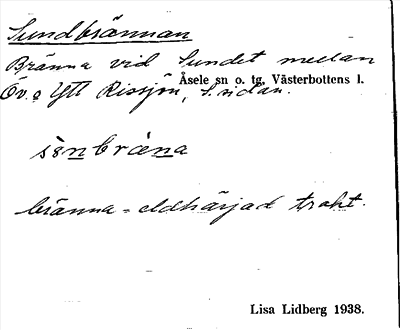 Sundbrännan
Bränna vid Sundet mellan
Åsele sn o. tg, Västerbottens l.
Öv. o Ytt Rissjön, S. sidan.
sènbrèna
bränna = eldhärjad trakt.
Lisa Lidberg 1938.